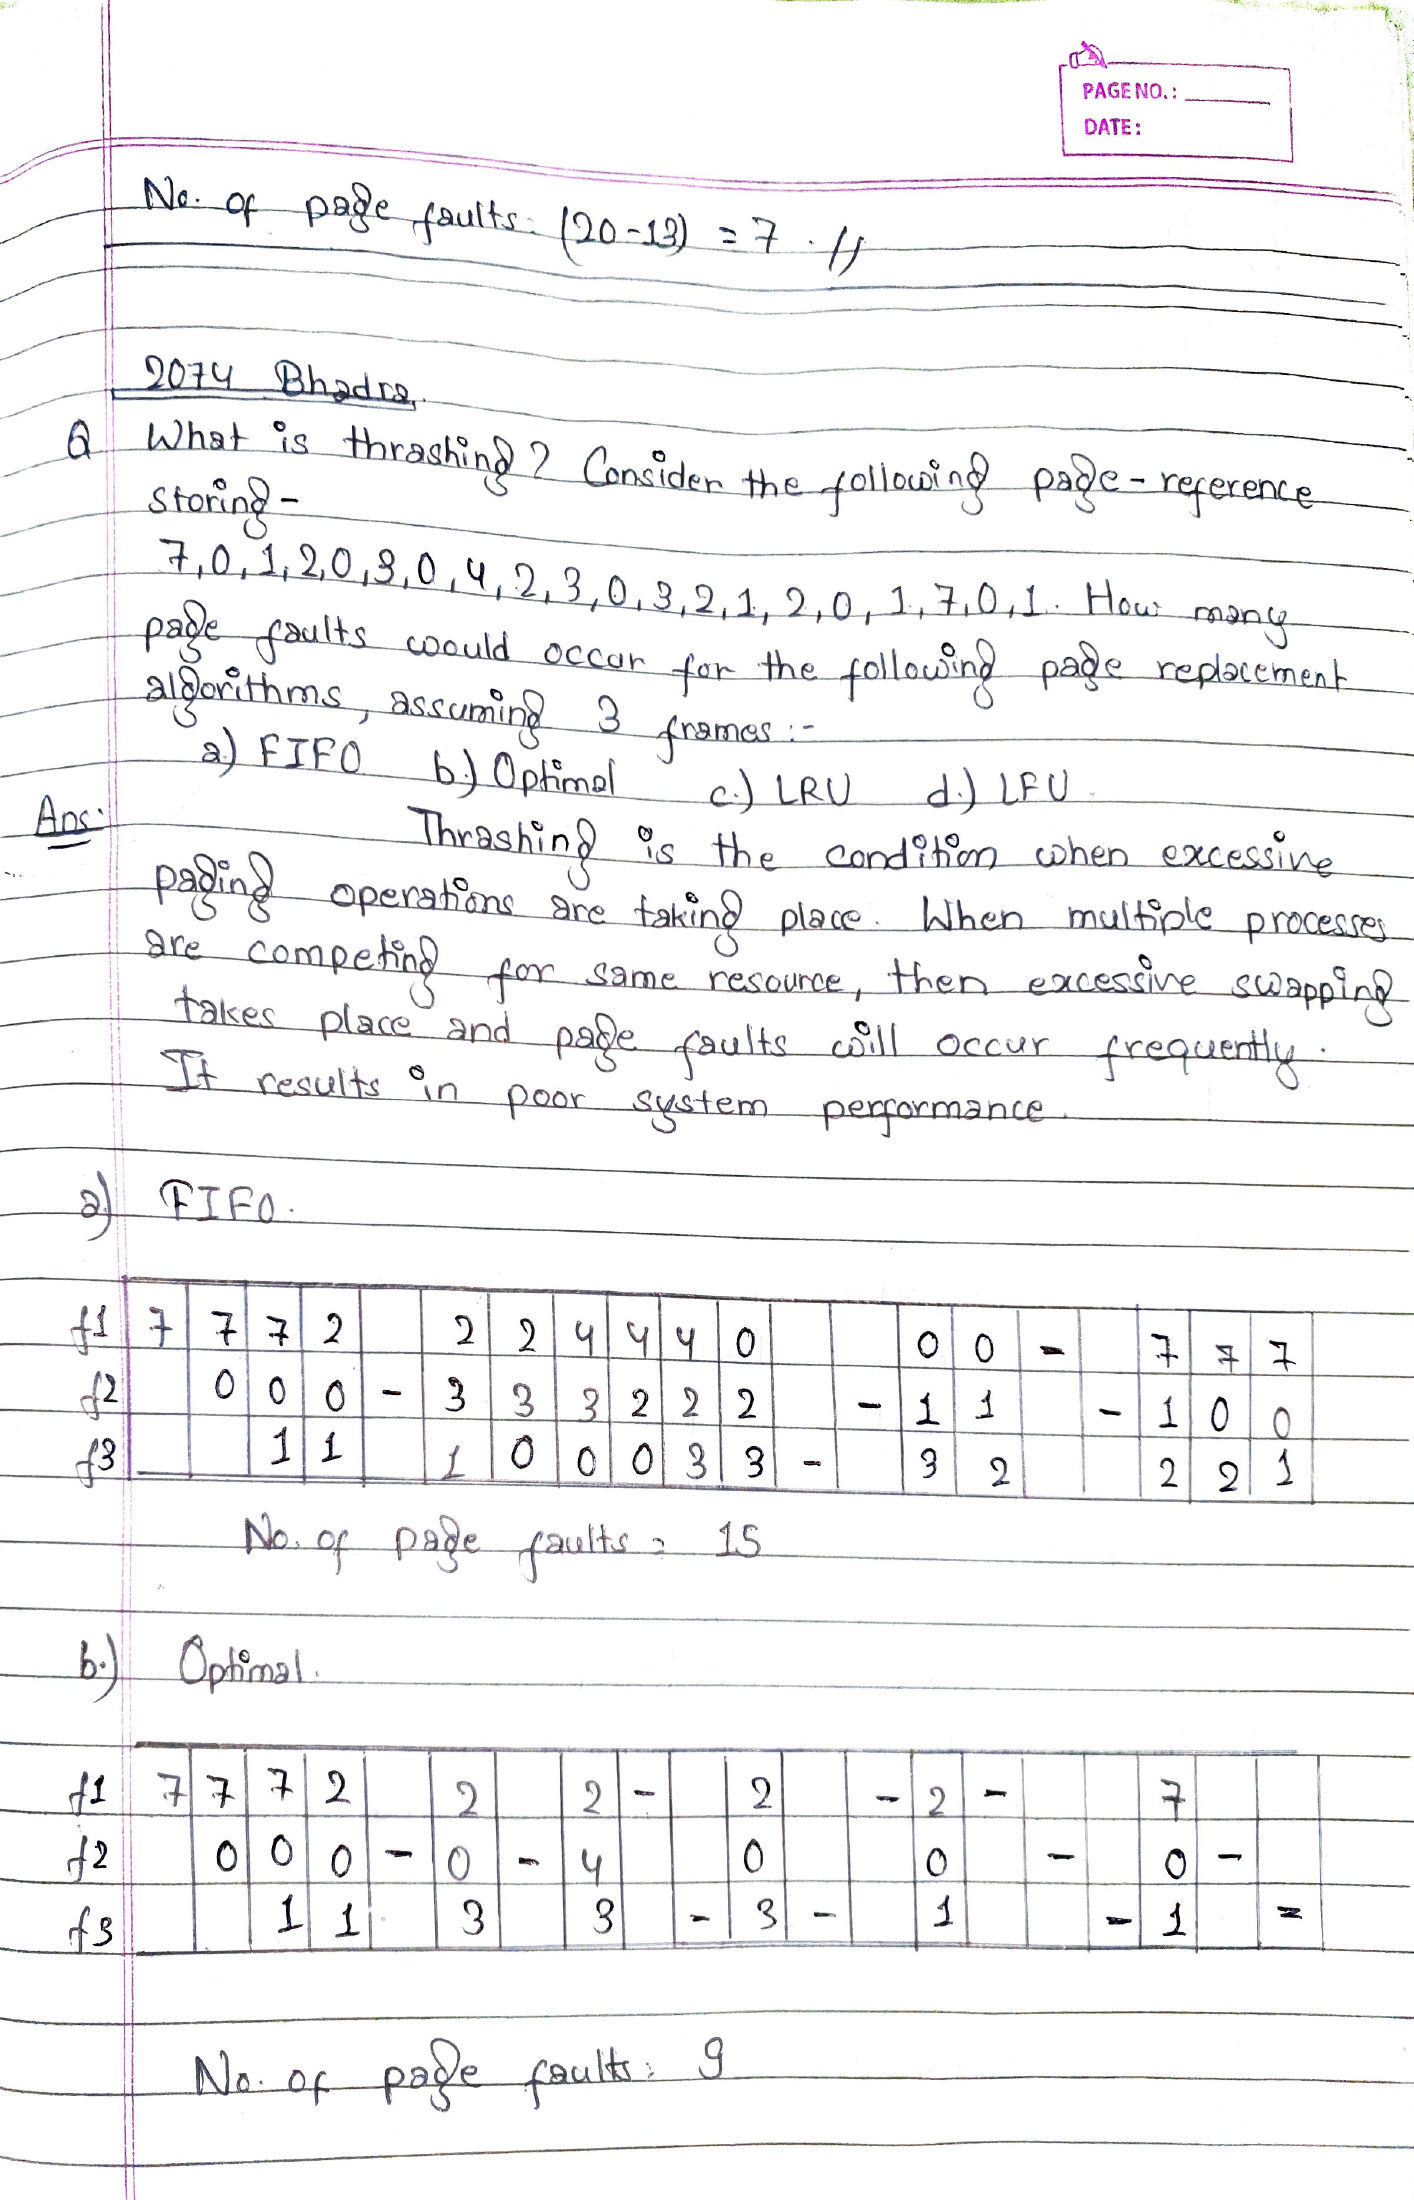 PAGE NO.:
DATE:
No. of page faults: (20-13) = 7.
2074 Bhadra
Q What is thrashing? Consider the following page-reference
storing-
7,0,1,2,0,3,0,4,2,3,0,3,2,1,2,0,1,7,0,1. How many
page faults would occur for the following page replacement
algorithms, assuming 3 frames:-
a.) FIFO b.) Optimal c.) LRU d.) LFU.
Ans: Thrashing is the condition when excessive
paging operations are taking place. When multiple processes
are competing for same resource, then excessive swapping
takes place and page faults will occur frequently.
It results in poor system performance.
a) FIFO.
f1 7 7 7 2 2 2 4 4 4 0 0 0 - 7 7 7
f2 0 0 0 - 3 3 3 2 2 2 - 1 1 - 1 0 0
f3 1 1 1 0 0 0 3 3 - 3 2 2 2 1
No. of page faults = 15
b.) Optimal.
f1 7 7 7 2 2 2 - 2 - 2 - 7
f2 0 0 0 - 0 - 4 0 0 - 0 -
f3 1 1 3 3 - 3 - 1 - 1 =
No. of page faults: 9